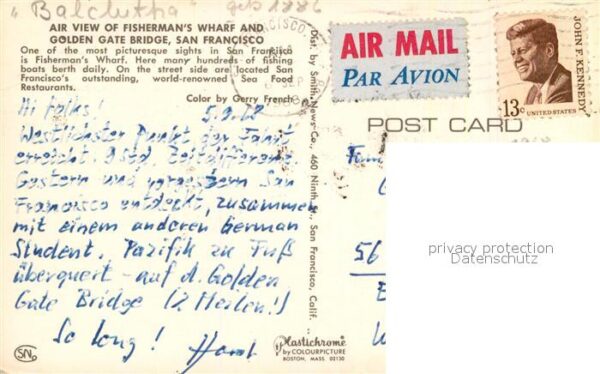 "Balclutha geb 1886
AIR VIEW OF FISHERMAN'S WHARF AND
GOLDEN GATE BRIDGE, SAN FRANCISCO
One of the most picturesque sights in San Francisco
is Fisherman's Wharf. Here many hundreds of fishing
boats berth daily. On the street side are located San
Francisco's outstanding, world-renowned Sea Food
Restaurants.
Color by Gerry French
Hi folks! 5.9.68
Westlichster Punkt der Fahrt
erreicht. 9 Std. Zeitdifferenz.
Gestern und vorgestern San
Francisco entdeckt, zusammen
mit einem anderen German
Student. Pazifik zu Fuß
überquert - auf d. Golden
Gate Bridge (2 Meilen!)
So long!
SN
Dist. by Smith News Co., 460 Ninth St., San Francisco, Calif.
Plastichrome
by COLOURPICTURE
BOSTON, MASS. 02130
AIR MAIL
PAR AVION
JOHN F. KENNEDY
13c UNITED STATES
POST CARD
56
privacy protection
Datenschutz